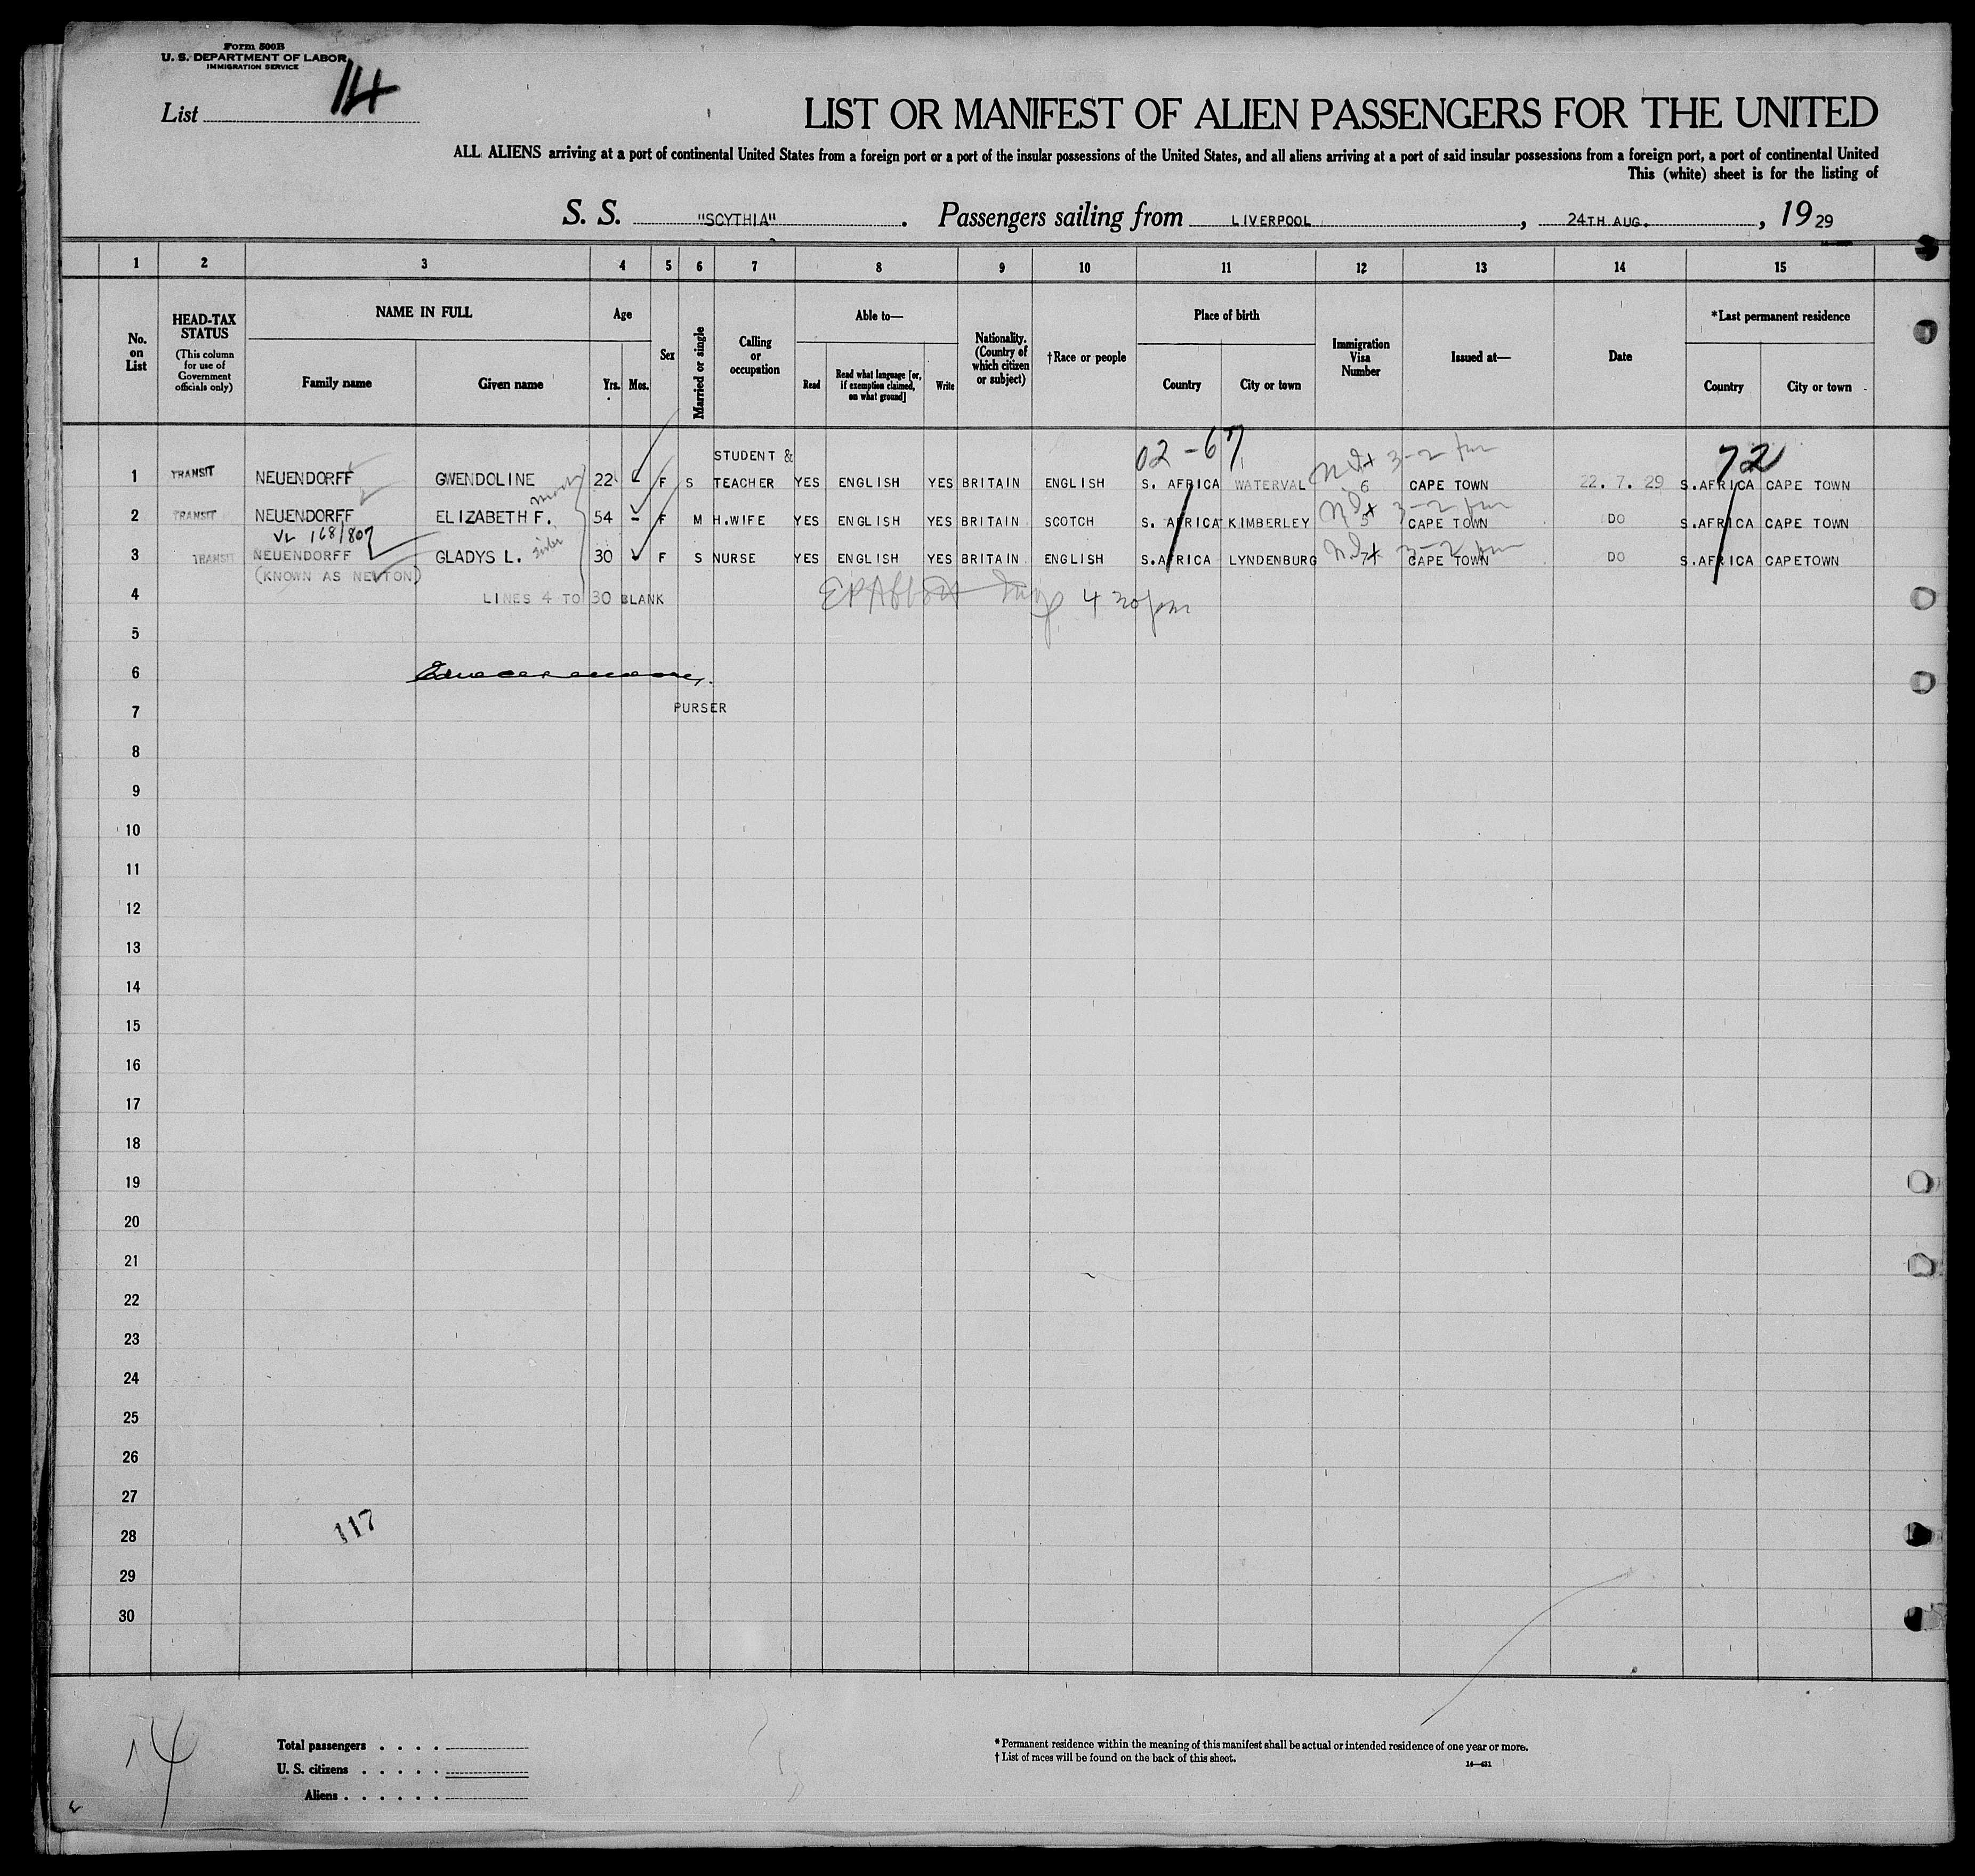 Form 500B
U. S. DEPARTMENT OF LABOR
IMMIGRATION SERVICE
List 14
LIST OR MANIFEST OF ALIEN PASSENGERS FOR THE UNITED
ALL ALIENS arriving at a port of continental United States from a foreign port or a port of the insular possessions of the United States, and all aliens arriving at a port of said insular possessions from a foreign port, a port of continental United
This (white) sheet is for the listing of
S. S. "SCYTHIA". Passengers sailing from LIVERPOOL, 24TH AUG., 1929
1 2 3 4 5 6 7 8 9 10 11 12 13 14 15
No. on List
HEAD-TAX STATUS
(This column for use of Government officials only)
NAME IN FULL
Family name
Given name
Age
Yrs.
Mos.
Sex
Married or single
Calling or occupation
Able to—
Read
Read what language [or, if exemption claimed, on what ground]
Write
Nationality. (Country of which citizen or subject)
†Race or people
Place of birth
Country
City or town
Immigration Visa Number
Issued at—
Date
*Last permanent residence
Country
City or town
02-67
72
STUDENT &
1 TRANSIT NEUENDORFF GWENDOLINE 22 F S TEACHER YES ENGLISH YES BRITAIN ENGLISH S. AFRICA WATERVAL 6 CAPE TOWN 22. 7. 29 S.AFRICA CAPE TOWN
2 TRANSIT NEUENDORFF ELIZABETH F. 54 - F M H.WIFE YES ENGLISH YES BRITAIN SCOTCH S. AFRICA KIMBERLEY 5 CAPE TOWN DO S.AFRICA CAPE TOWN
168/807
3 TRANSIT NEUENDORFF GLADYS L. sister 30 F S NURSE YES ENGLISH YES BRITAIN ENGLISH S.AFRICA LYNDENBURG 7 CAPE TOWN DO S.AFRICA CAPETOWN
(KNOWN AS NEWTON)
4 LINES 4 TO 30 BLANK
5
6
7 PURSER
8
9
10
11
12
13
14
15
16
17
18
19
20
21
22
23
24
25
26
27
28 117
29
30
14
Total passengers . . . .
U. S. citizens . . . . .
Aliens . . . . . .
* Permanent residence within the meaning of this manifest shall be actual or intended residence of one year or more.
† List of races will be found on the back of this sheet.